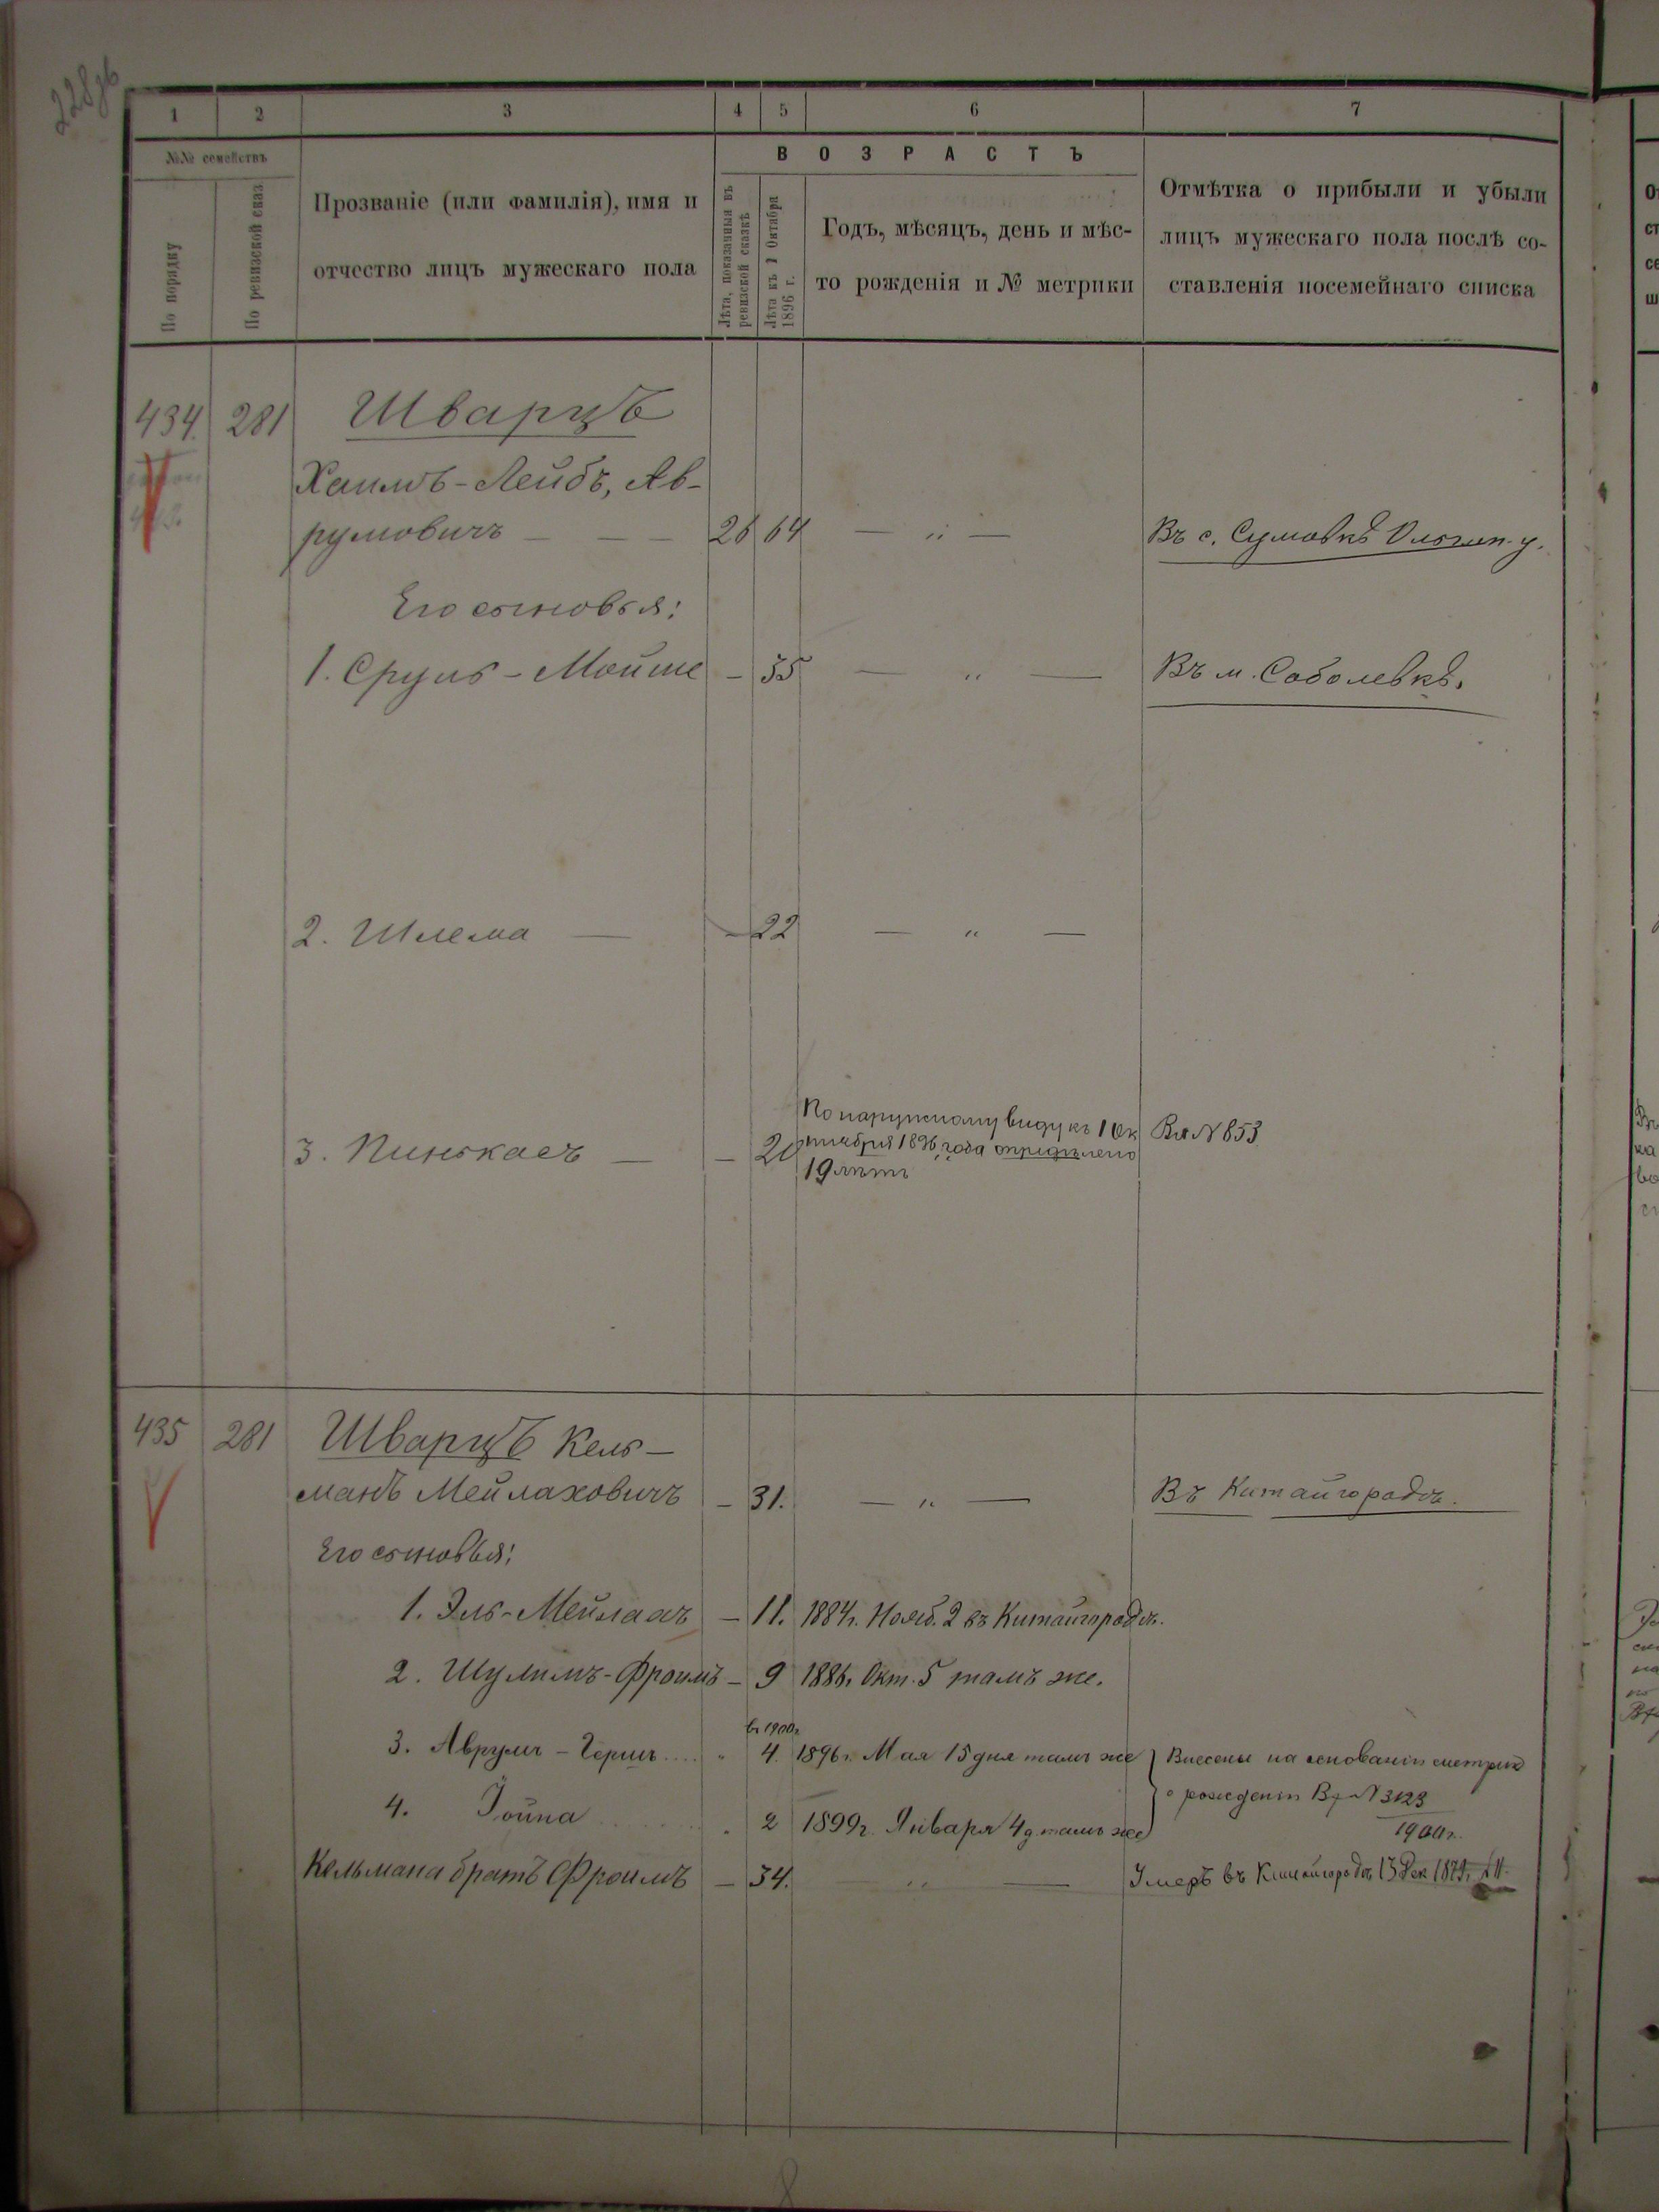 228об
1 2 3 4 5 6 7
№№ семействъ
По порядку
По ревизской сказ
Прозваніе (или фамилія), имя и
отчество лицъ мужескаго пола
ВОЗРАСТЪ
Лѣта, показанныя въ
ревизской сказкѣ
Лѣта къ 1 Октября
1896 г.
Годъ, мѣсяцъ, день и мѣс-
то рожденія и № метрики
Отмѣтка о прибыли и убыли
лицъ мужескаго пола послѣ со-
ставленія посемейнаго списка
434. 281 Шварцъ
Хаимъ-Лейбъ, Ав-
румовичъ — — — 26 64 — „ — Въ с. Сумовкѣ Ольгоп. у.
Его сыновья:
1. Сруль-Мойше — 55 — „ — Въ м. Соболевкѣ.
2. Шлема — — 22 — „ —
3. Пинькасъ — — 20 По наружному виду къ 1 Ок Вх № 853
тября 1896 года опредѣлено
19 лѣтъ
435 281 Шварцъ Кель-
манъ Мейлаховичъ — 31. — „ — Въ Китайгородѣ.
Его сыновья:
1. Эль-Мейлахъ — 11. 1884г. Нояб. 2 въ Китайгородѣ.
2. Шулимъ-Фроимъ — 9 1886г. Окт. 5 тамъ же.
въ 1900г
3. Аврумъ-Гершъ.... „ 4. 1896г. Мая 15 дня тамъ же } Внесены на основаніи метрик
4. Іойна ........ „ 2 1899г. Января 4 д. тамъ же о рожденіи Вх № 3123
1900г.
Кельмана братъ Фроимъ — 34. — „ — Умеръ въ Китайгородѣ 13 Дек